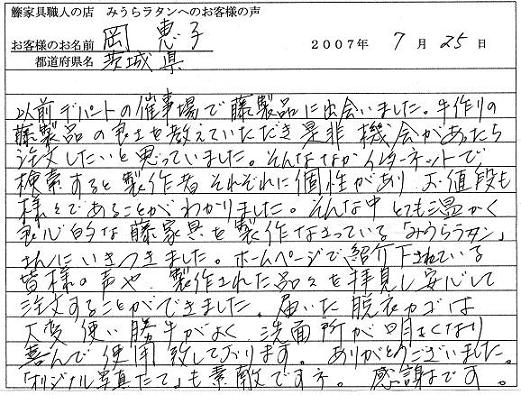 籐家具職人の店　みうらラタンへのお客様の声
お客様のお名前　岡　恵子　2007年　7月　25日
都道府県名　茨城県
以前デパートの催事場で藤製品に出会いました。手作りの
藤製品の良さを教えていただき是非機会があったら
注文したいと思っていました。そんななかインターネットで
検索すると製作者それぞれに個性があり お値段も
様々であることがわかりました。そんな中 とても温かく
良心的な藤家具を製作なさっている「みうらラタン」
さんにいきつきました。ホームページで紹介下されている
皆様の声や、製作された品々を拝見し安心して
注文することができました。届いた脱衣カゴは
大変使い勝手がよく、洗面所が明るくなり
喜んで使用致しております。ありがとうございました。
「オリジナル写真たて」も素敵ですネ。感謝です。